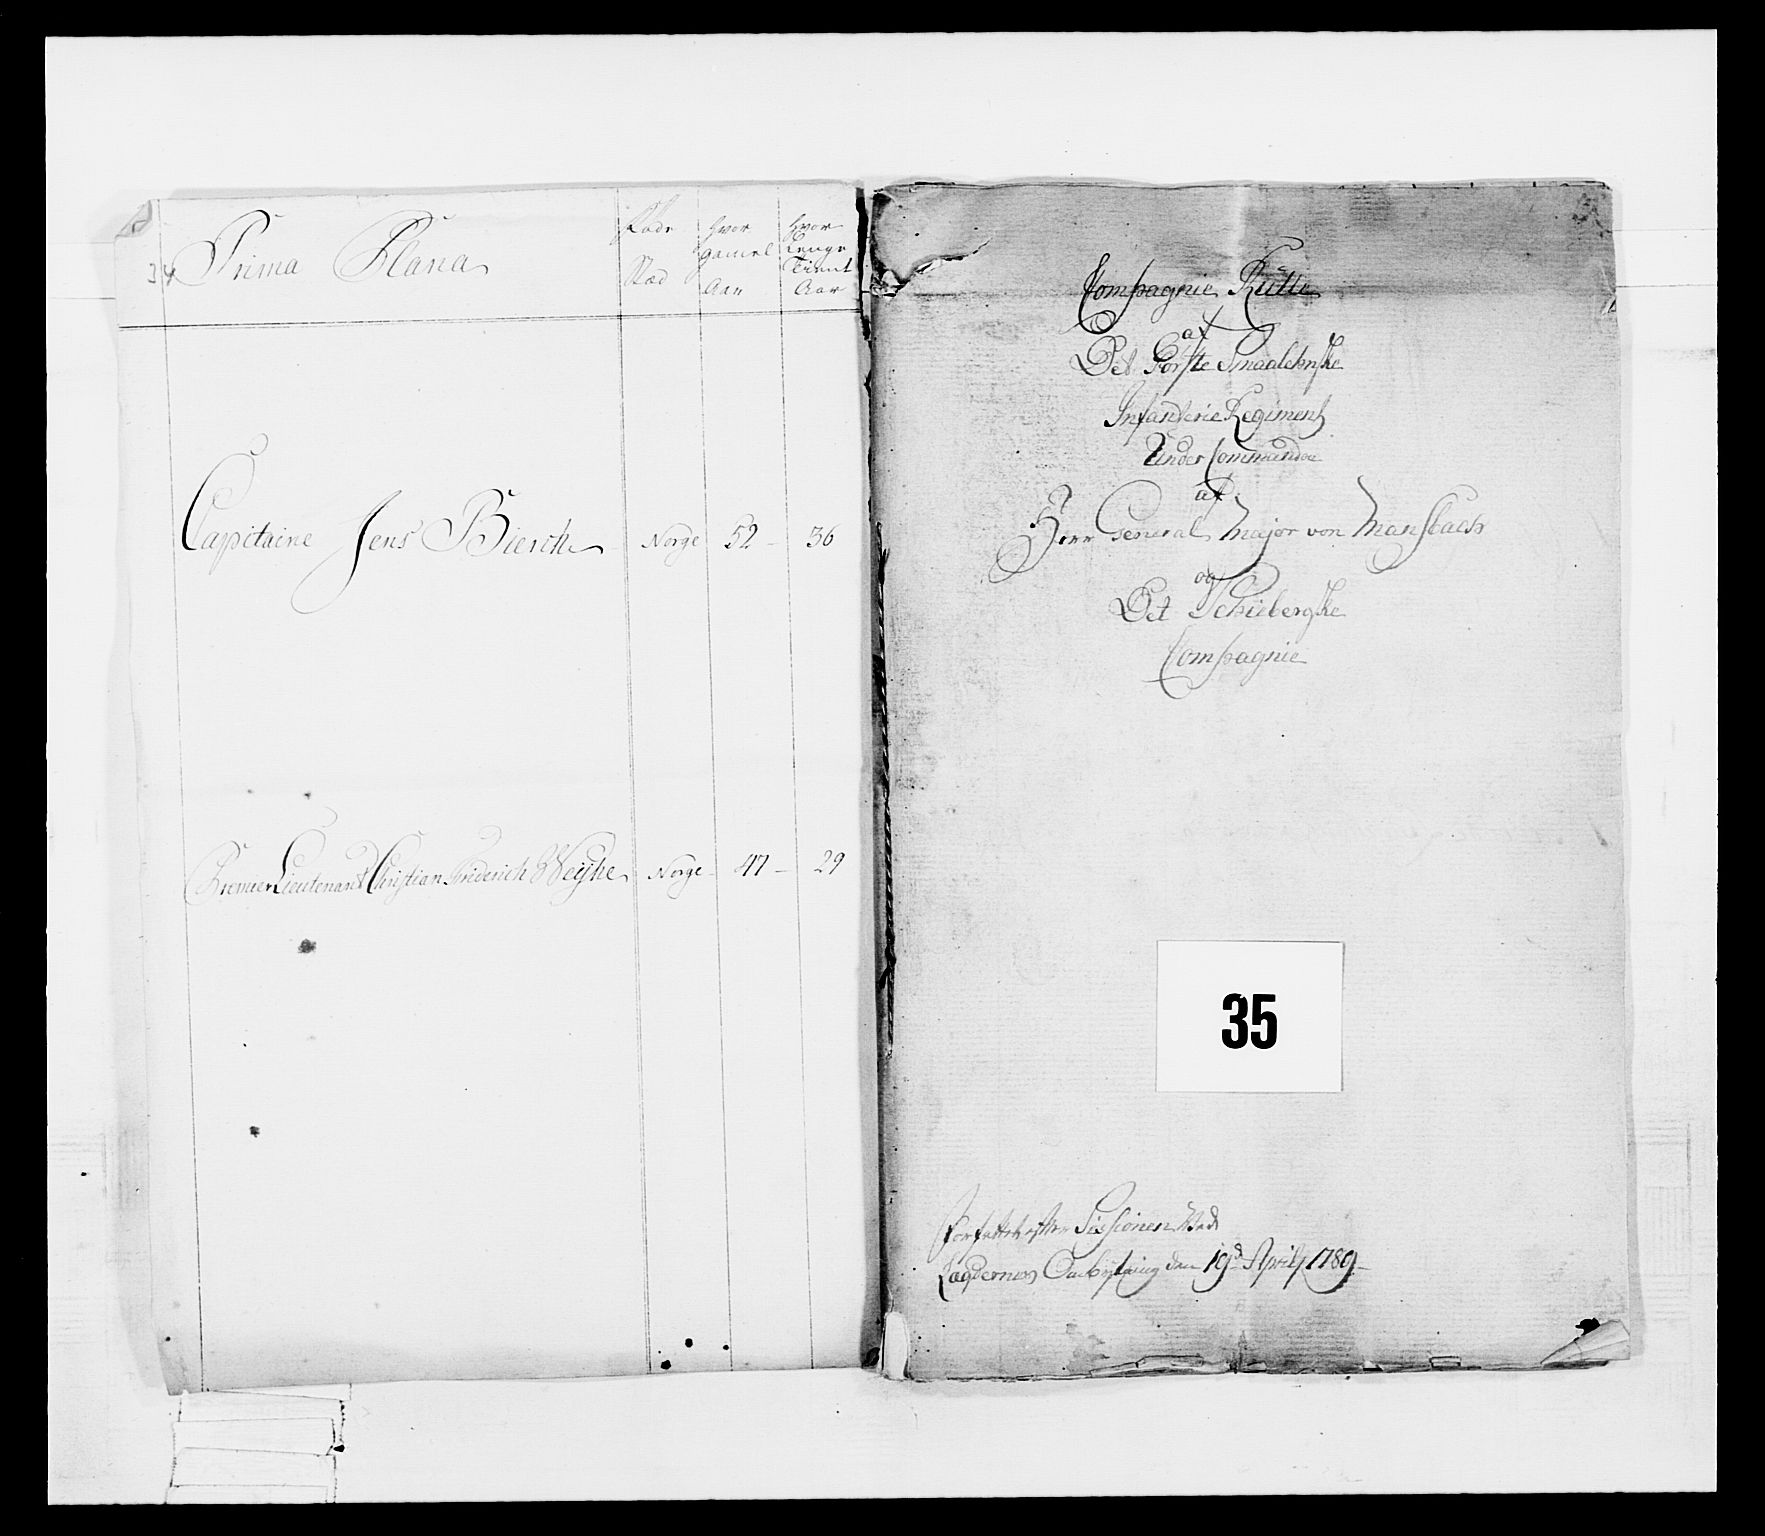 34 Prima Plana
Føde Stæd
Hvor gamel Aar
Hvor Lenge Tient Aar
Capitaine Jens Bierch Norge 52 - 36
Premier Lieutenant Christian Friderich Weyhe Norge - 47 - 29
Compagnie Rulle
af
Det Første Smaalehnske
Infanterie Regiment
Under Commando
af
Herr General Major von Mansbach
og
Det Schiebergske
Compagnie
35
Forfattet efter Sessionen Ved
Laqdernes Ombÿtning den 19d April 1789